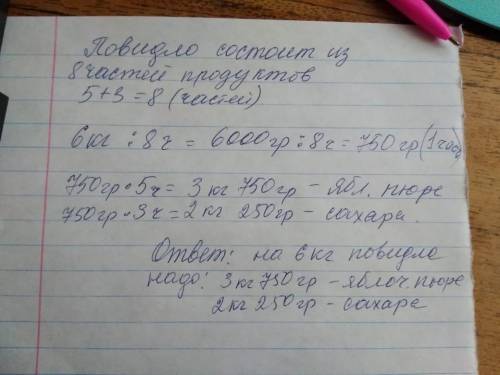 Повидло состоит из
8 частей продуктов
5+3=8 (частей)
6кг : 8ч = 6000гр : 8ч = 750гр (1часть)
750гр · 5ч = 3кг 750гр - ябл. пюре
750гр · 3ч = 2кг 250гр - сахара.
Ответ: на 6кг повидла
надо: 3кг 750гр - яблоч. пюре
2кг 250гр - сахара